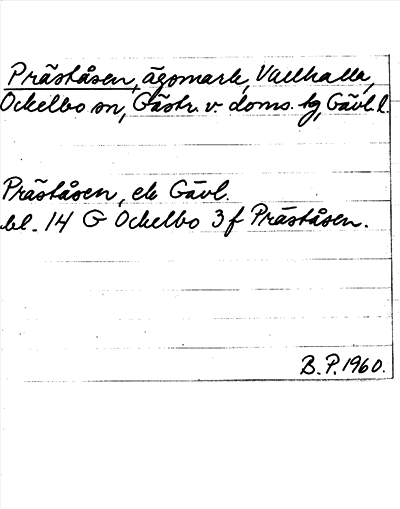 Präståsen, ägomark, Vallhalla,
Ockelbo sn, Gästr. v. doms. tg, Gävl. l.
Präståsen, ek Gävl.
bl. 14 G Ockelbo 3 f Präståsen.
B.P. 1960.